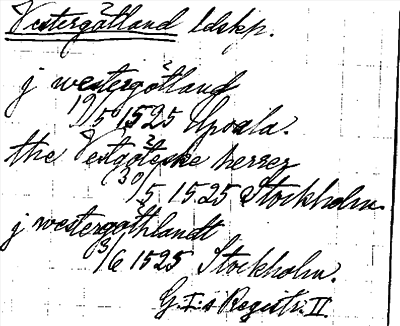 Vestergötland ldskp.
j westergötland
19/5 1525 Upsala.
the Vestgöteske herrer
30/5 1525 Stockholm.
j westergothlandt
3/6 1525 Stockholm.
G. I:s Registr. II